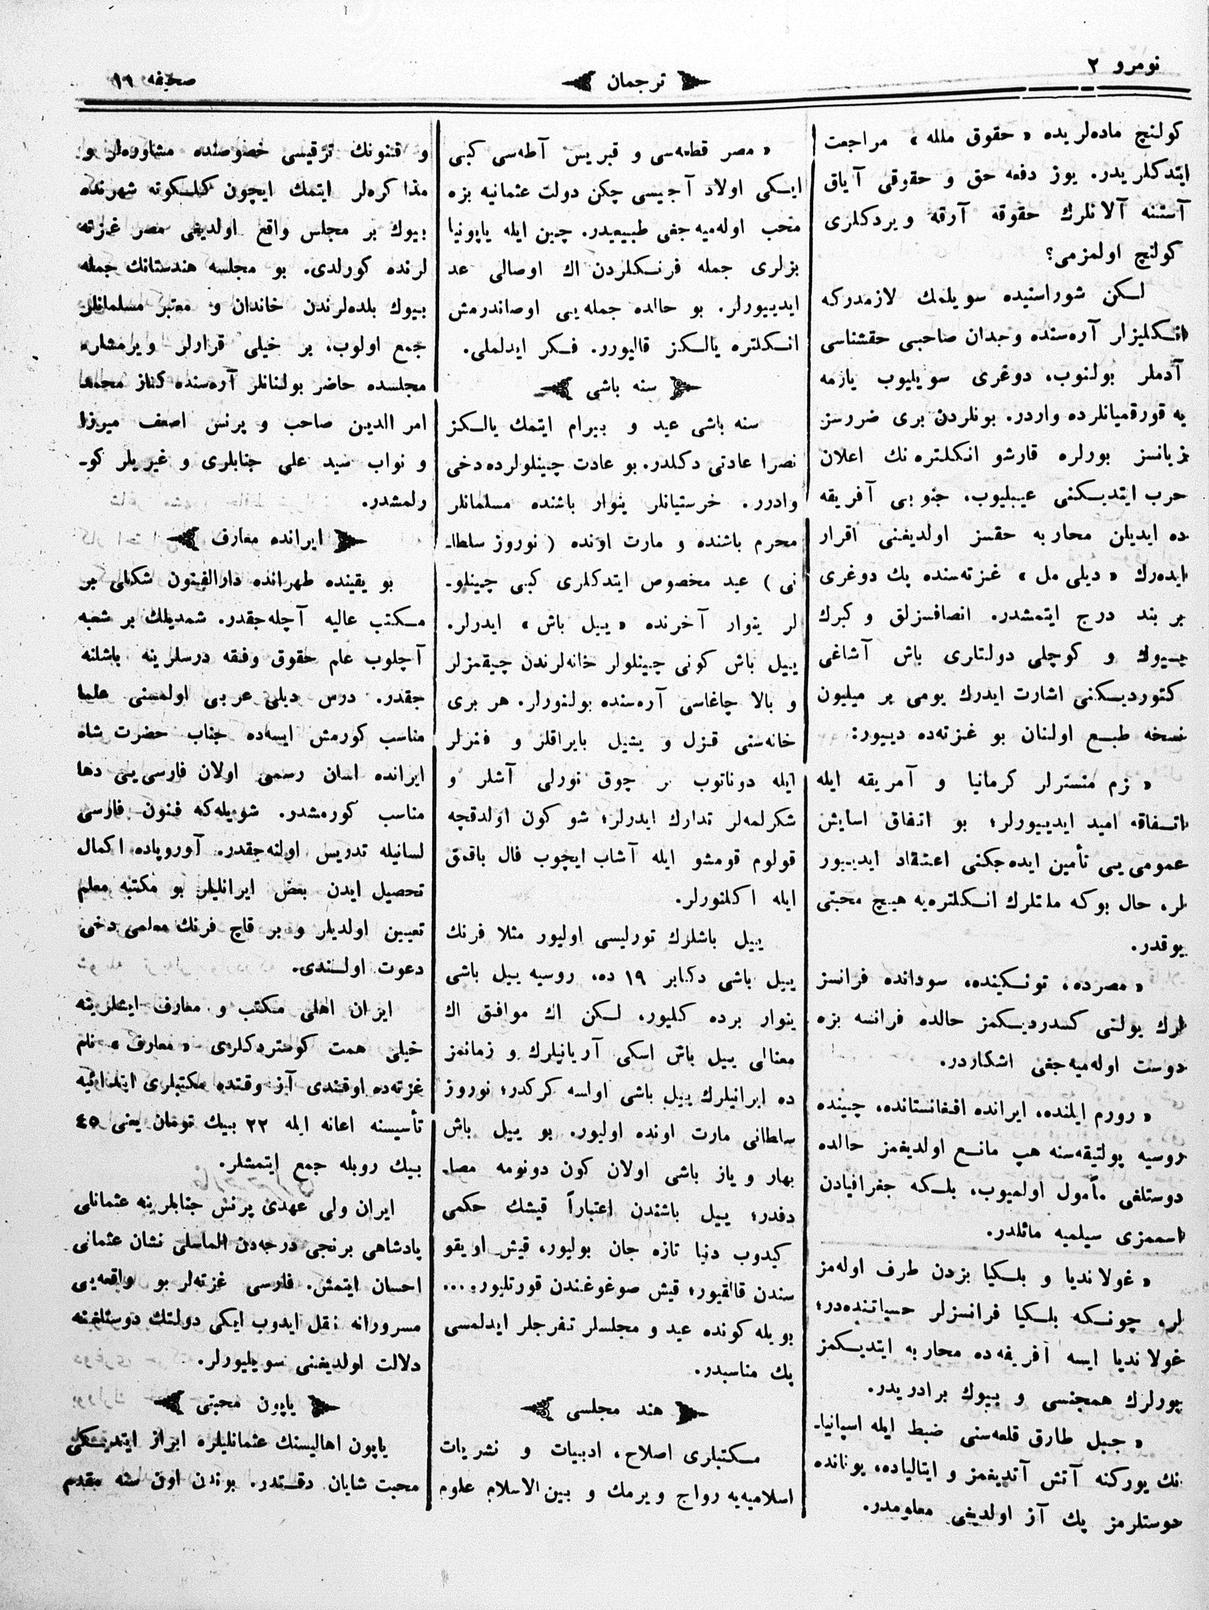 نومرو ٢
ترجمان
صحیفه ١٦
كولنچ ماده‌لریده «حقوق ملله» مراجعت
ایتدكلریدر. یوز دفعه حق و حقوقی آیاق
آستنه آلانلرك حقوقه آرقه ویردكلری
كولنچ اولمزمی؟
لـكن شوراسنیده سویلمك لازمدركه
انـكلیزلر آره‌سنده وجدان صاحبی حقشناسی
آدملر بولنوب، دوغری سویلیوب یازمه
یه قورقمیانلرده واردر. بونلردن بری ضررسز
زیانسز بورلره قارشو انكلتره‌نك اعلان
حرب ایتدیـكنی عیبلیوب، جنوبی آفریقه
ده ایدیلن محاربه حقسز اولدیغنی اقرار
ایده‌رك «دیلی مل» غزته‌سنده پك دوغری
بر بند درج ایتمشدر. انصافسزلق و كبرك
بیوك و كوچلی دولتلری باش آشاغی
كتوردیـكنی اشارت ایدرك یومی بر میلیون
نسخه طبـع اولنان بو غزته‌ده دییور:
« زم منسترلر كرمانیا و آمریقه ایله
اتـفاقه امید ایدییورلر؛ بو اتفاق اسایش
عمومی‌یی تأمین ایده‌جكنی اعتقاد ایدییور
لر، حال بوكه ملتلرك انـكلتره‌یه هیچ محبتی
یوقدر.
« مصرده، تونـكینده، سودانده فرانسز
لرك یولنی كسدردیـكمز حالده فرانسه بزه
دوست اوله‌میه‌جغی اشكاردر.
« روم ایلنده، ایرانده افغانستانده، چینده
روسیه پولتیقه‌سنه هپ مانـع اولدیغمز حالده
دوستلغی مأمول اولمیوب، بلـكه جغرافیادن
اسممزی سیلمیه مائلدر.
« غولاندیا و بلـكیا بزدن طرف اوله‌مز
لر، چونـكه بلـكیا فرانسزلر حسیاتنده‌در؛
غولاندیا ایسه آفریقه‌ده محاربه ایتدیـكمز
بورلرك همجنسی و بیوك برادریدر.
« جبل طارق قلعه‌سنی ضبط ایله اسپانیاـ
نك یوركنه آتش آندیغمز و ایتالیاده، یونانده
دوستلرمز پك آز اولدیغی معلومدر.
« مصر قطعه‌سی و قبریس آطه‌سی كبی
ایـكی اولاد آجیسی چكن دولت عثمانیه بزه
محب اوله‌میه‌جغی طبیعیدر. چین ایله یاپونیا
بزلری جمله فرنـكلردن اك اوصالی عد
ایدییورلر. بو حالده جمله‌یی اوصاندرمش
انـكلتره یالـكز قالیورر. فـكر ایدلملی.
سنه باشی
سنه باشی عید و بیرام ایتمك یالـكز
نصرا عادتی دكلدر. بو عادت چینلولرده دخی
وادرر. خرستیانلر ینوار باشنده مسلمانلر
محرم باشنده و مارت اونده (نوروز سلطاـ
نی) عید مخصوص ایتدكلری كبی چینلوـ
لر ینوار آخرنده «ییل باش» ایدرلر.
ییل باش كونی چینلولر خانه‌لرندن چیقمزلر
و بالا چاغاسی آره‌سنده بولنورلر. هر بری
خانه‌سنی قزل و یشیل بایراقلر و فنرلر
ایله دوناتوب چوق تورلی آشلر و
شكرلمه‌لر تدارك ایدرلر؛ شو كون اولدقچه
قولوم قومشو ایله آشاب ایچوب فال باقمق
ایله اكلنورلر.
ییل باشلرك تورلیسی اولیور مثلا فرنك
ییل باشی دكابر ١٩ ده، روسیه ییل باشی
ینوار برده كلیور، لـكن اك موافق اك
معنالی ییل باش اسكی آریانیلرك و زمانمز
ده ایرانیلرك ییل باشی اولسه كركدر؛ نوروز
سلطانی مارت اونده اولیور. بو ییل باش
بهار و یاز باشی اولان كون دونومه مصاـ
دفدر؛ ییل باشندن اعتباراً قیشك حكمی
كیدوب دنیا تازه جان بولیور، قیش اویقو
سندن قالقیور؛ قیش صوغوغندن قورتلیور....
بویله كونده عید و مجلسلر تفرجلر ایدلمسی
پك مناسبدر.
هند مجلسی
مـكتبلری اصلاح، ادبیات و نشریات
اسلامیه‌یه رواج ویرمك و بین الاسلام علوم
و فنونك ترقیسی خصوصنده مشاوره‌لر و
مذاكره‌لر ایتمك ایچون كلـكوته شهرنده
بیوك بر مجلس واقع اولدیغی مصر غزته
لرنده كورلدی. بو مجلسه هندستانك جمله
بیوك بلده‌لرندن خاندان و معتبر مسلمانلر
جمع اولوب، بر خیلی قرارلر ویرمشلر.
مجلسده حاضر بولنانلر آره‌سنده كناز محمد
امر الدین صاحب و پرنس اصف میرزا
و نواب سید علی جنابلری و غیریلر كوـ
رلمشدر.
ایرانده معارف
بو یقینده طهرانده دارالفنون شكلی بر
مـكتب عالیه آچله‌جقدر. شمدیلك بر شعبه
آچلوب علم حقوق وفقه درسلرینه باشلنه
جقدر. درس دیلی عربی اولمسنی علما
مناسب كورمش ایسه‌ده جناب حضرت شاه
ایرانده لسان رسمی اولان فارسی‌یی دها
مناسب كورمشدر. شویله‌كه فنون فارسی
لسانیله تدریس اولنه‌جقدر. آوروپاده اكمال
تحصیل ایدن بعض ایرانلیلر بو مكتبه معلم
تعیین اولدیلر و بر قاچ فرنك معلمی دخی
دعوت اولـندی.
ایران اهلی مكتب و معارف ایشلرینه
خیلی همت كوستردكلری «معارف» نام
غزته‌ده اوقندی آز وقتده مكتبلری ابتدائیه
تأسیسنه اعانه ایله ٢٢ بیك تومان یعنی ٤٥
بیك روبله جمع ایتمشلر.
ایران ولی عهدی پرنس جنابلرینه عثمانلی
پادشاهی برنجی درجه‌دن الماسلی نشان عثمانی
احسان ایتمش. فارسی غزته‌لر بو واقعه‌یی
مسرورانه نقل ایدوب ایكی دولتك دوستلغنه
دلالت اولدیغنی سویلیورلر.
یاپون محبتی
یاپون اهالیسنك عثمانلیلره ابراز ایتدیـكی
محبت شایان دقـتدر. بوندن اون سنه مقدم